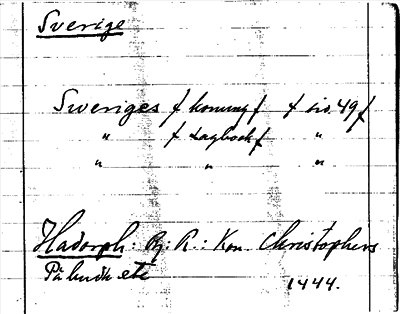 Sverige
Sweriges f konung f f sid. 49 f
" f Lagbock f "
" " "
Hadorph: R.: Kon Christophers
På budh etc 1444.